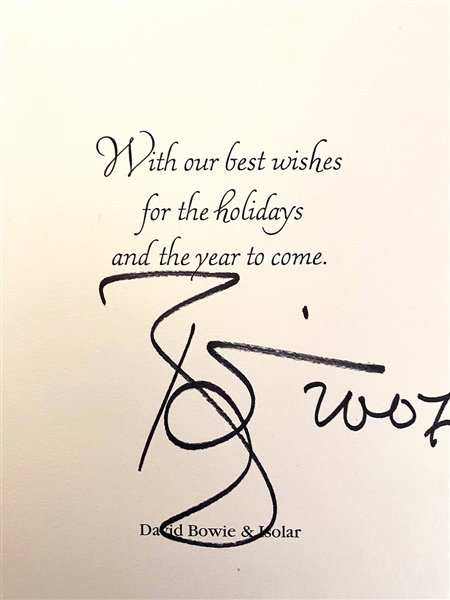 With our best wishes
for the holidays
and the year to come.
David Bowie & Isolar